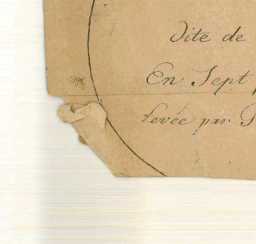 Dite de
En Sept
Levée par